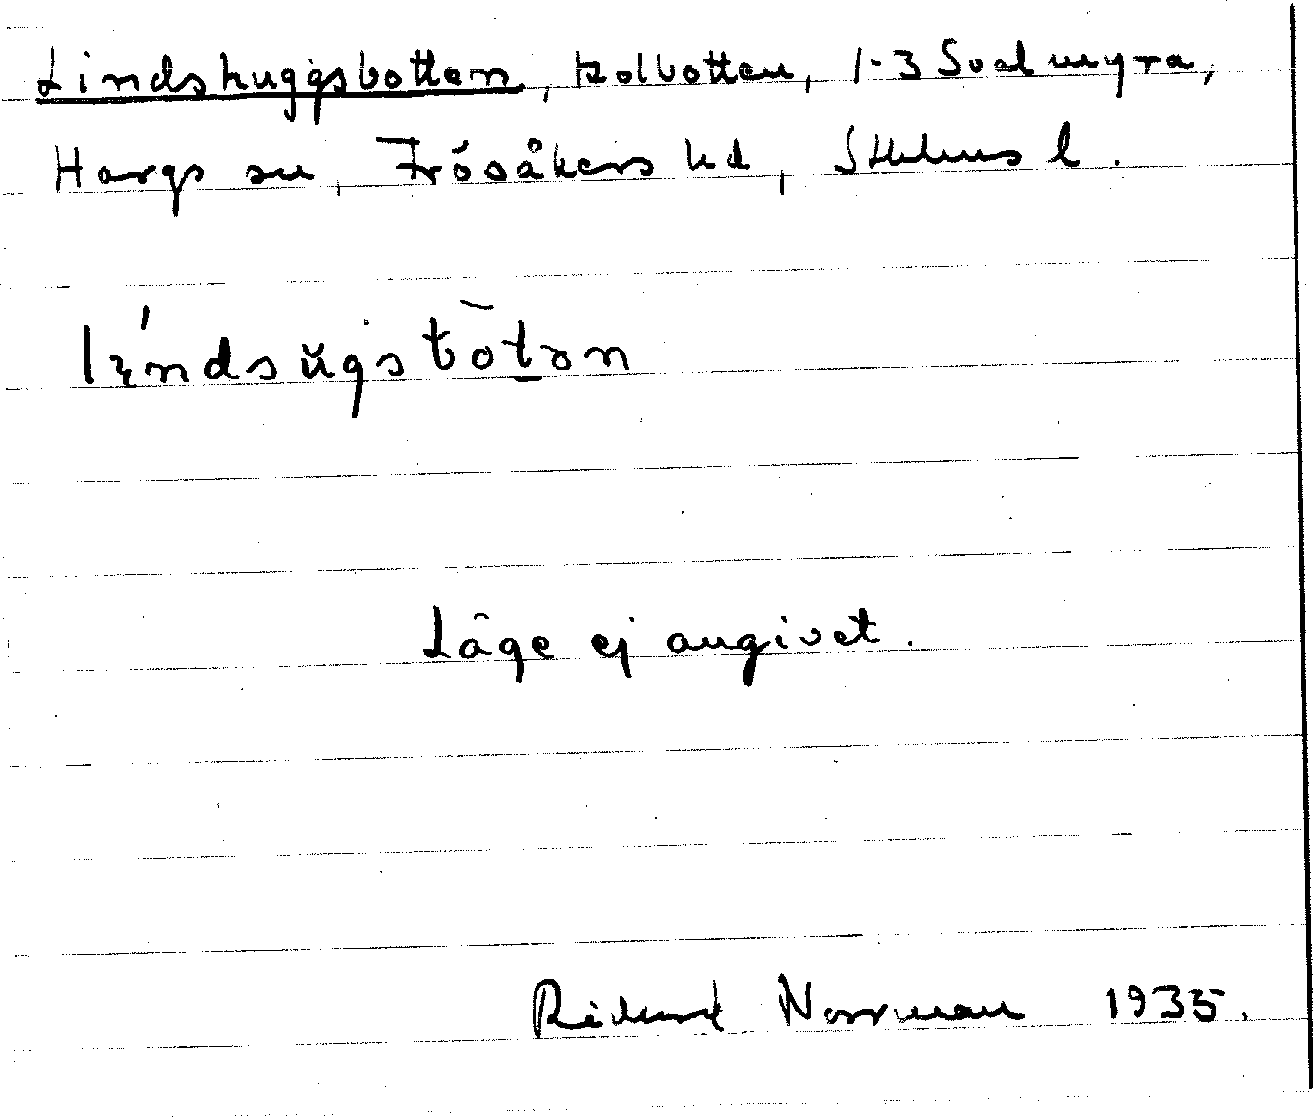 Lindshuggsbotten, kolbotten, 1-3 Svalmyra,
Hargs sn, Frösåkers hd, Sthlms l.
Läge ej angivet.
Rickard Norrman 1935.